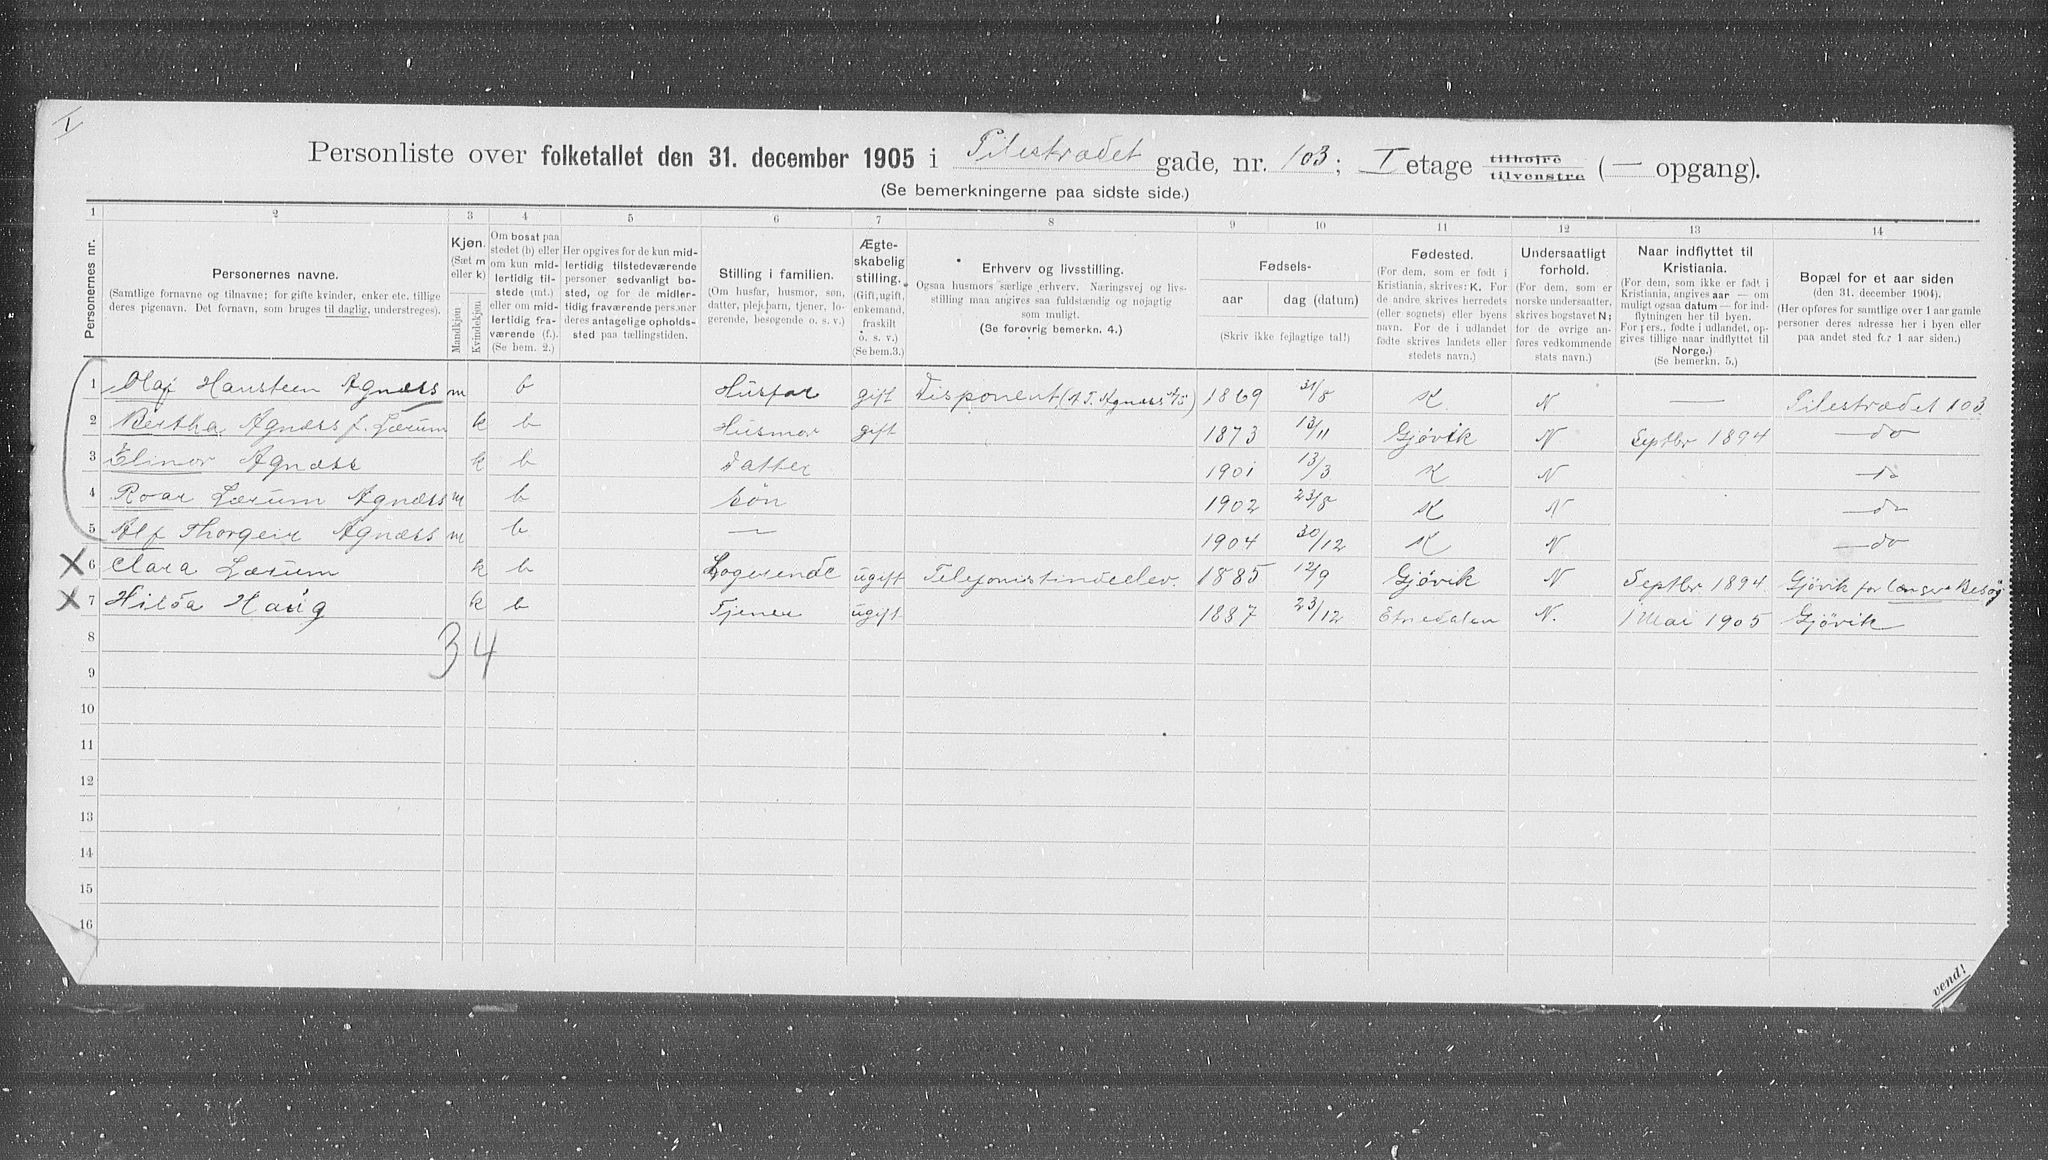 I
Personliste over folketallet den 31. december 1905 i Pilestrædet gade, nr. 103; I etage tilhøjre tilvenstre (— opgang).
(Se bemerkningerne paa sidste side.)
1 2 3 4 5 6 7 8 9 10 11 12 13 14
Personernes nr.
Personernes navne.
(Samtlige fornavne og tilnavne; for gifte kvinder, enker etc. tillige deres pigenavn. Det fornavn, som bruges til daglig, understreges).
Kjøn.
(Sæt m eller k)
Mandkjøn
Kvindekjøn
Om bosat paa stedet (b) eller om kun midlertidig tilstede (mt.) eller om midlertidig fraværende (f.). (Se bem. 2.)
Her opgives for de kun midlertidig tilstedeværende personer sedvanlig bosted, og for de midlertidig fraværende personer deres antagelige opholdssted paa tællingstiden.
Stilling i familien.
(Om husfar, husmor, søn, datter, plejebarn, tjener, logerende, besøgende o. s. v.)
Ægteskabelig stilling.
(Gift, ugift, enkemand, fraskilt o. s. v.) (Se bem. 3.)
Erhverv og livsstilling.
Ogsaa husmors særlige erhverv. Næringsvej og livsstilling maa angives saa fuldstændig og nøjagtig som muligt.
(Se forøvrig bemerkn. 4.)
Fødsels-
aar dag (datum)
(Skriv ikke fejlagtige tal!)
Fødested.
(For dem, som er født i Kristiania, skrives: K. For de andre skrives herredets (eller sognets) eller byens navn. For de i udlandet fødte skrives landets eller stedets navn.)
Undersaatligt forhold.
(For dem, som er norske undersaatter, skrives bogstavet N; for de øvrige anføres vedkommende stats navn.)
Naar indflyttet til Kristiania.
(For dem, som ikke er født i Kristiania, angives aar — om muligt ogsaa datum — for indflytningen her til byen. For pers., født i udlandet, opgives tillige naar indflyttet til Norge.) (Se bemerkn. 5.)
Bopæl for et aar siden
(den 31. december 1904).
(Her opføres for samtlige over 1 aar gamle personer deres adresse her i byen eller paa andet sted for 1 aar siden.)
1 Olaf Hansteen Agnæss m b Husfar gift Disponent (A.T. Agness A/S) 1869 31/8 K N — Pilestrædet 103
2 Bertha Agnæss f. Lærum k b Husmor gift 1873 13/11 Gjøvik N Septbr 1894 — do
3 Elinor Agnæss k b Datter 1901 13/3 K N — do
4 Roar Lærum Agnæss m b Søn 1902 23/8 K N — do
5 Alf Thorgeir Agnæss m b — 1904 30/12 K N — do
X 6 Clara Lærum k b Logerende ugift Telefonistindeelev. 1885 12/9 Gjøvik N Septbr. 1894. Gjøvik for længere Besøg
X 7 Hilda Haug k b Tjener ugift 1887 23/12 Etnedalen N. 1 Mai 1905 Gjøvik
8 3 4
9
10
11
12
13
14
15
16
vend!